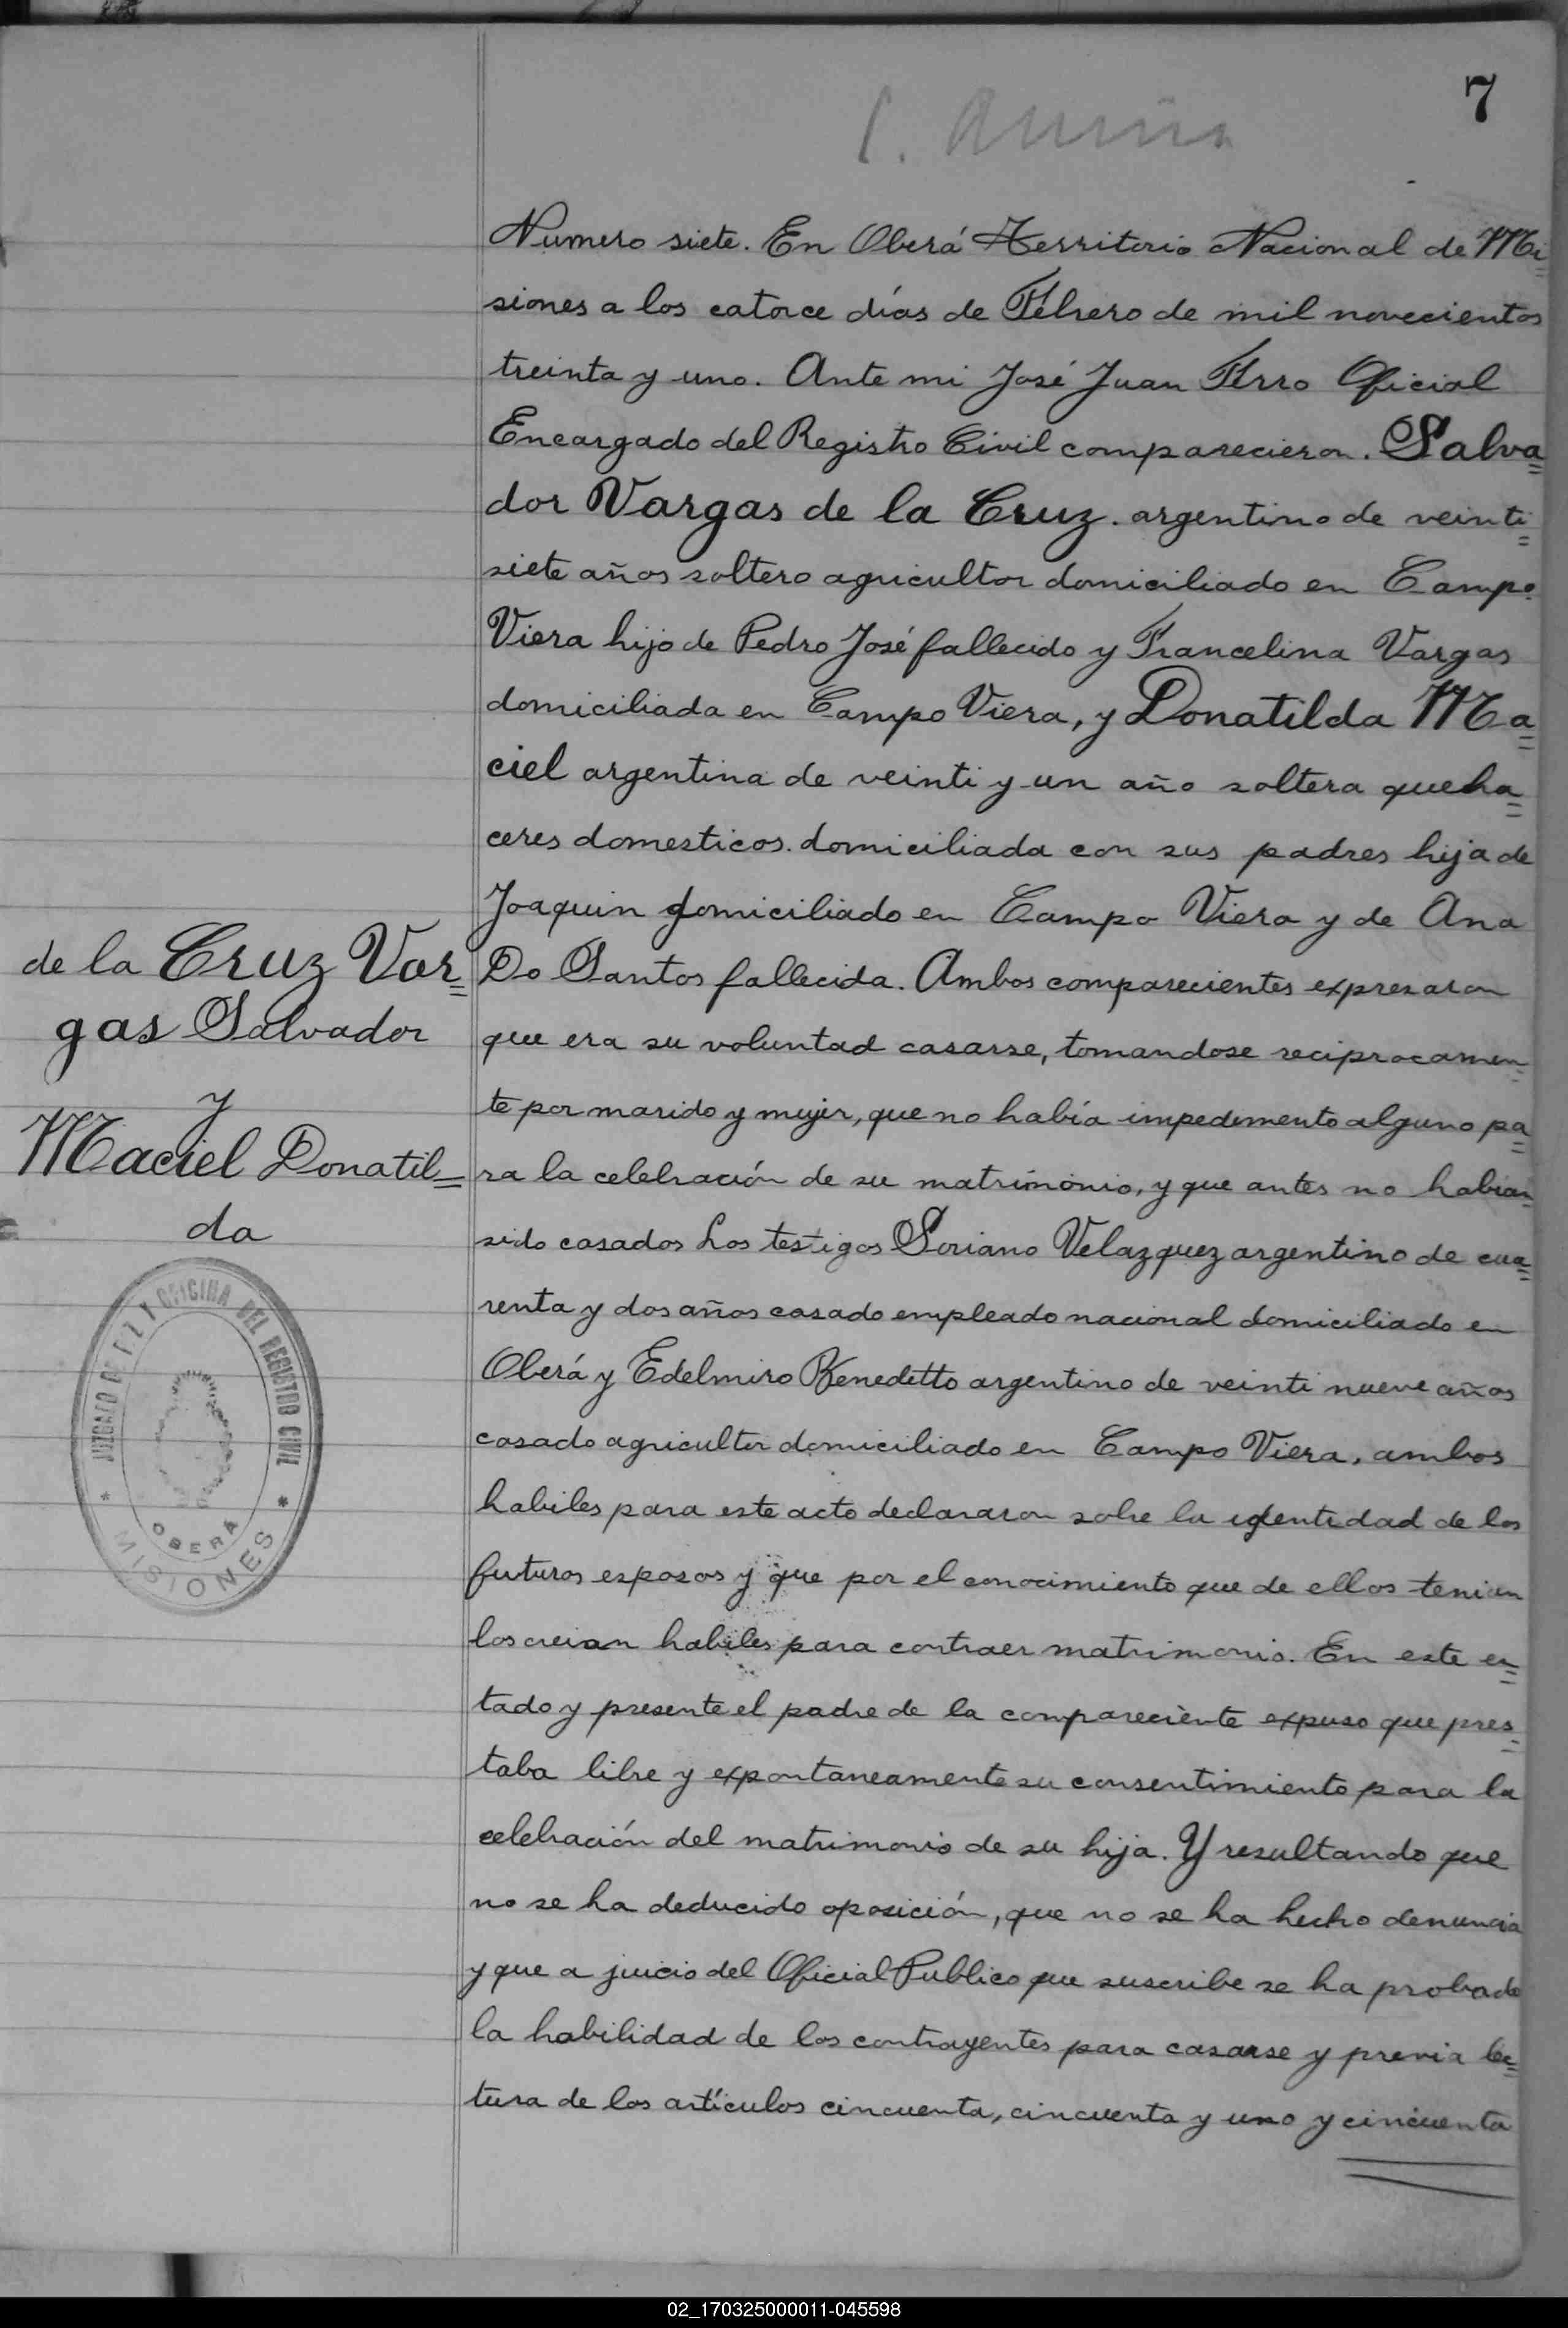 7
Numero siete. En Oberá Territorio Nacional de Mi=
siones a los catorce días de Febrero de mil novecientos
treinta y uno. Ante mi José Juan Ferro Oficial
Encargado del Registro Civil comparecieron. Salva=
dor Vargas de la Cruz. argentino de veinti=
siete años soltero agricultor domiciliado en Campo
Viera hijo de Pedro José fallecido y Francelina Vargas
domiciliada en Campo Viera, y Donatilda Ma=
ciel argentina de veinti y un año soltera queha=
ceres domesticos. domiciliada con sus padres hija de
Joaquin domiciliado en Campo Viera y de Ana
Do Santos fallecida. Ambos comparecientes expresaron
que era su voluntad casarse, tomandose reciprocamen=
te por marido y mujer, que no había impedimento alguno pa=
ra la celebración de su matrimonio, y que antes no habian
sido casados Los testigos Soriano Velazquez argentino de cua=
renta y dos años casado empleado nacional domiciliado en
Oberá y Edelmiro Benedetto argentino de veinti nueve años
casado agricultor domiciliado en Campo Viera, ambos
habiles para este acto declararon sobre la identidad de los
futuros esposos y que por el conocimiento que de ellos tenian
los creian habiles para contraer matrimonio. En este es=
tado y presente el padre de la compareciente expuso que pres=
taba libre y expontaneamente su consentimiento para la
celebración del matrimonio de su hija. Y resultando que
no se ha deducido oposición, que no se ha hecho denuncia
y que a juicio del Oficial Publico que suscribe se ha probado
la habilidad de los contrayentes para casarse y previa lec=
tura de los artículos cincuenta, cincuenta y uno y cincuenta
de la Cruz Var=
gas Salvador
y
Maciel Donatil=
da
JUZGADO DE PAZ Y OFICINA DEL REGISTRO CIVIL
* OBERÁ *
MISIONES
02_170325000011-045598